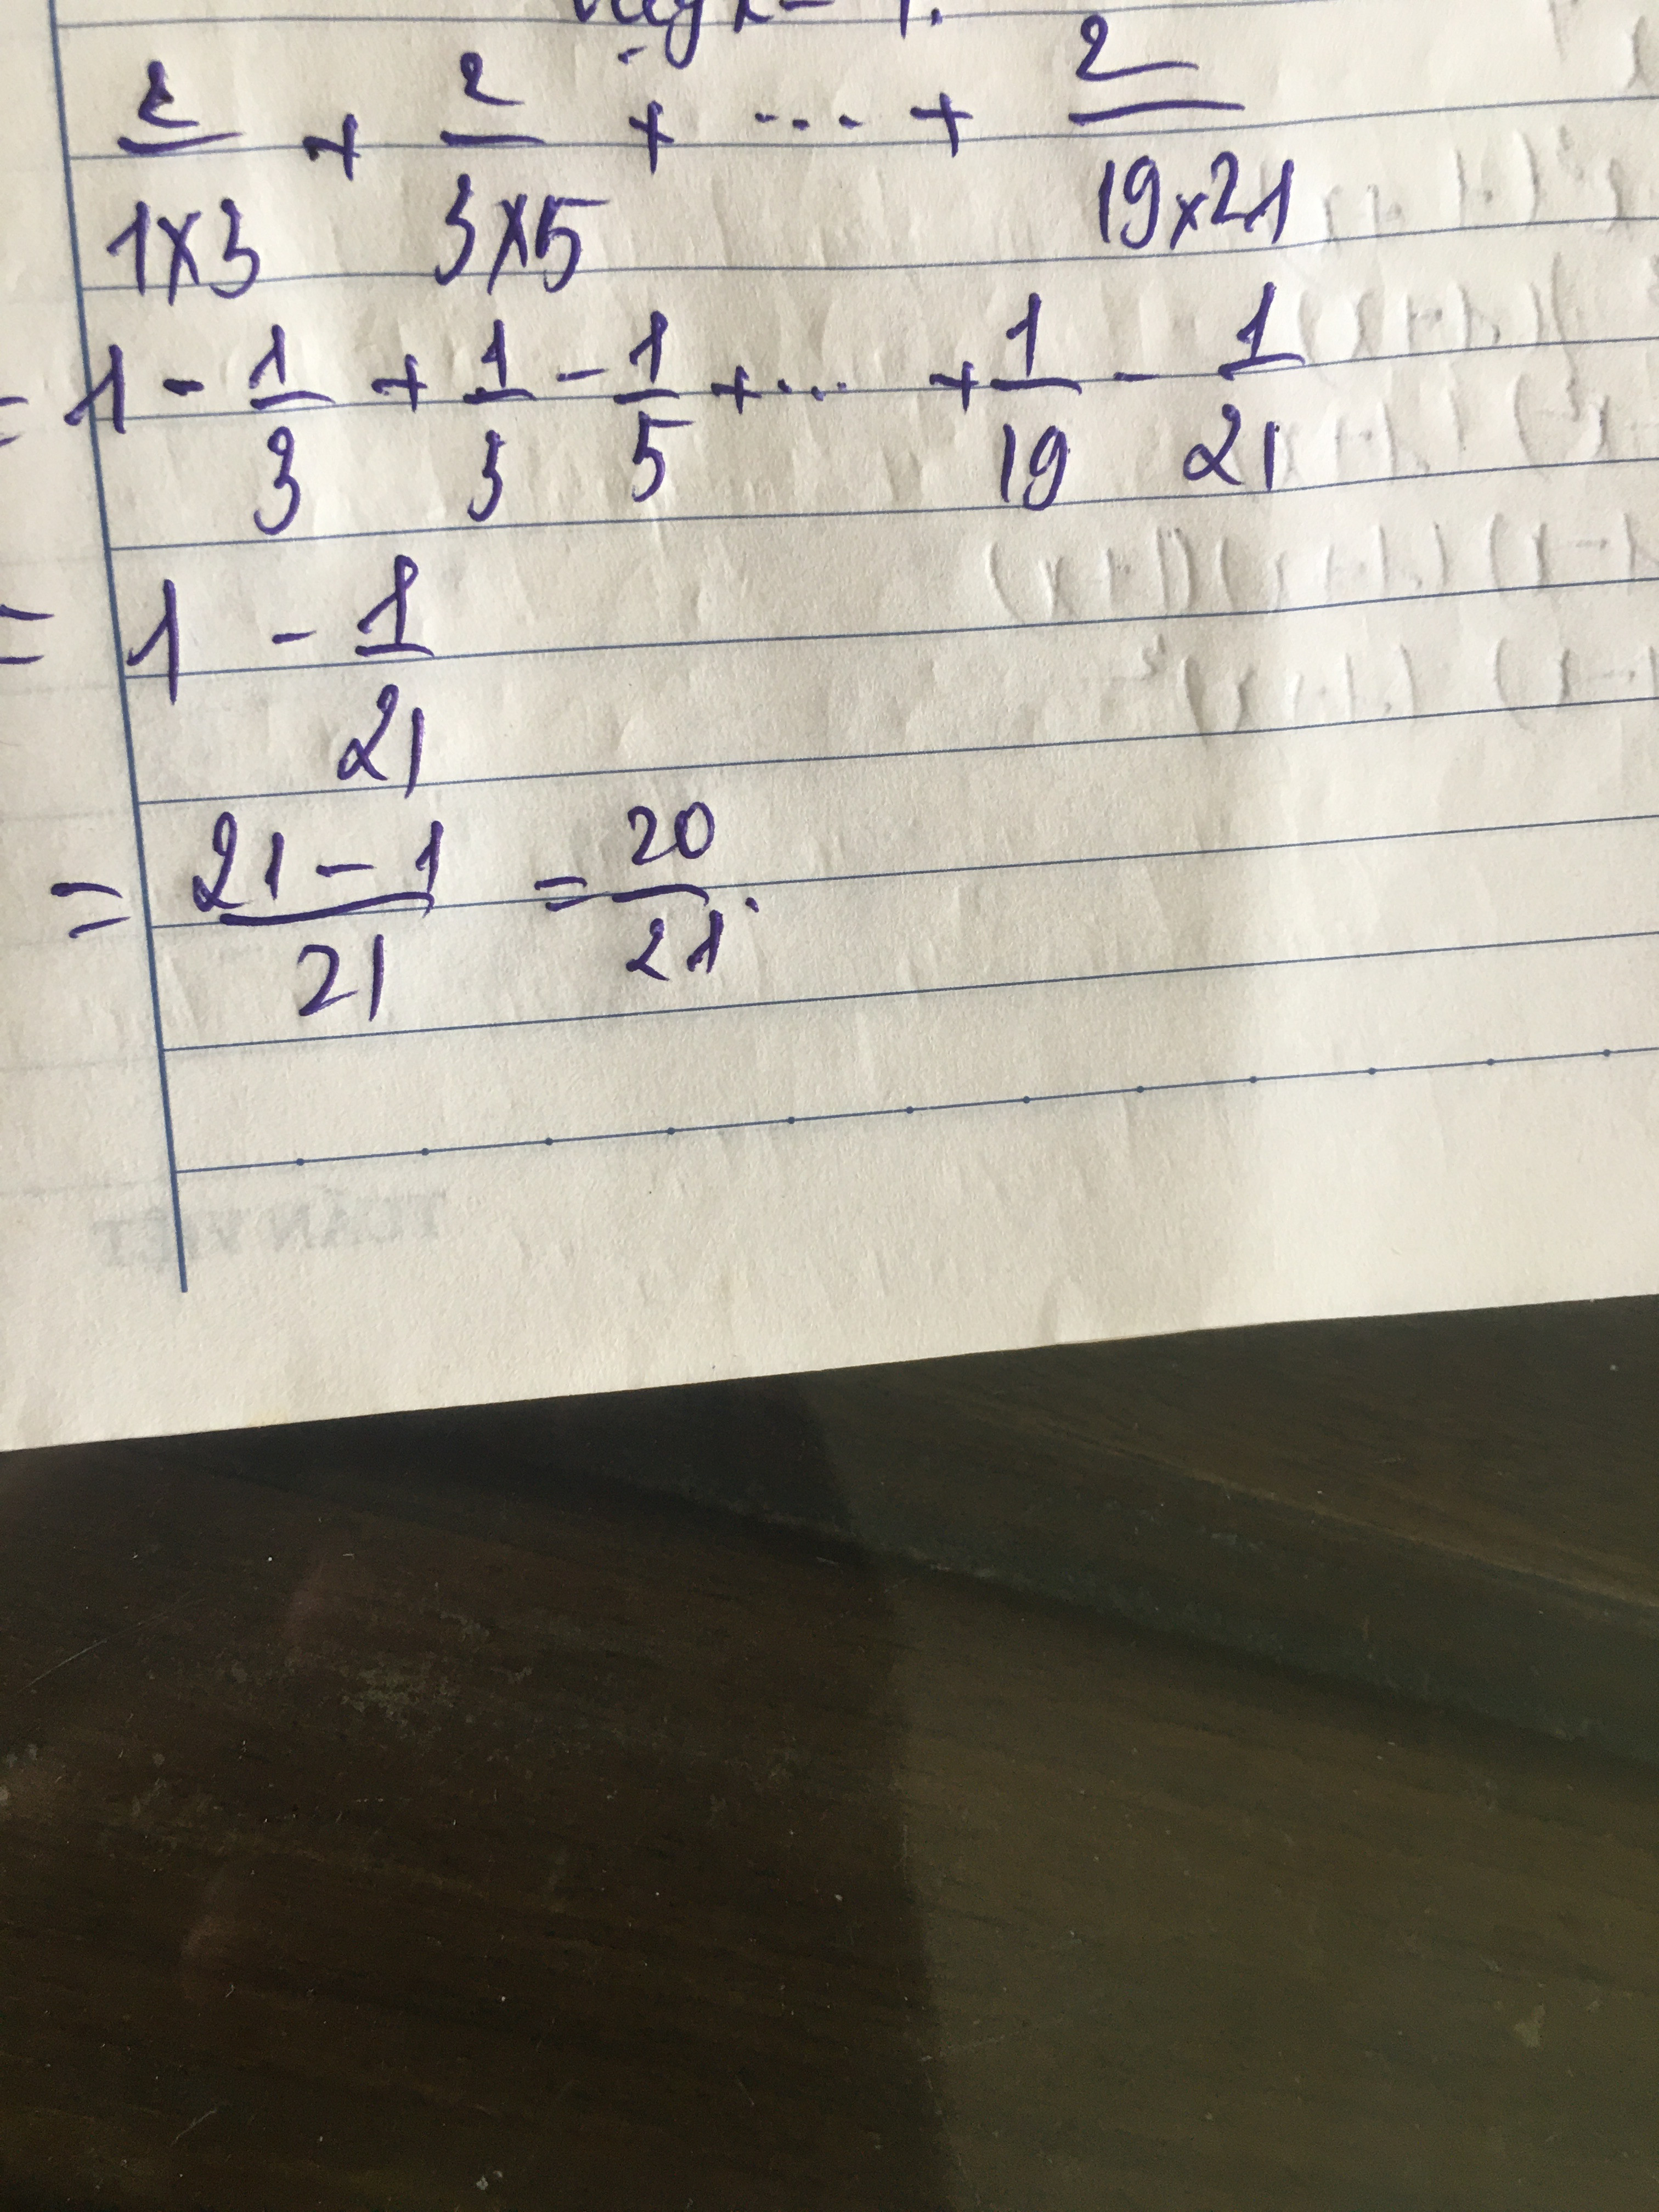 x = 1.
2/(1x3) + 2/(3x5) + ... + 2/(19x21)
= 1 - 1/3 + 1/3 - 1/5 + ... + 1/19 - 1/21
= 1 - 1/21
= (21-1)/21 = 20/21.
TUẤN VIỆT